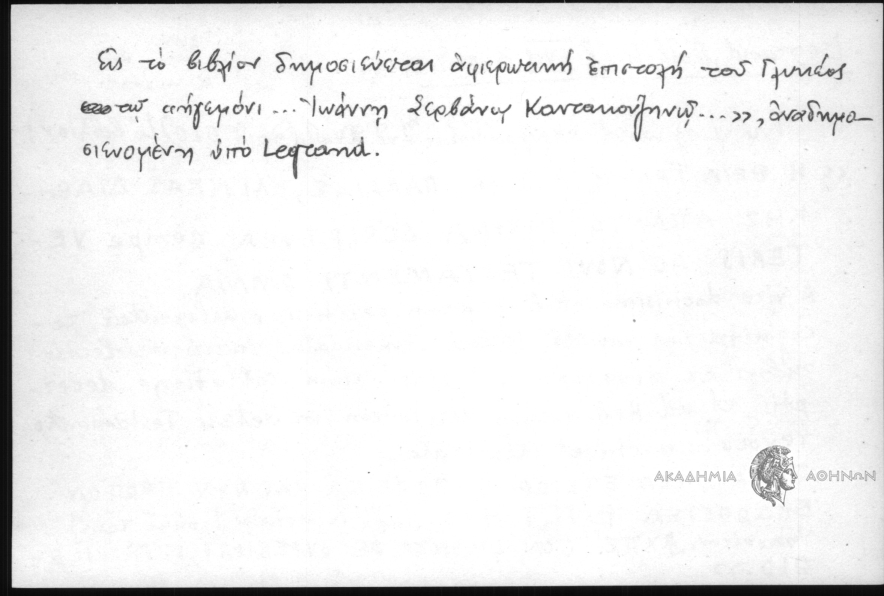 Εἰς τὸ βιβλίον δημοσιεύεται ἀφιερωτική ἐπιστολή τοῦ Γλυκέος
τῷ ἡγεμόνι... Ἰωάννῃ Σερβάνῳ Καντακουζηνῷ...», ἀναδημο-
σιευομένη ὑπό Legrand.
ΑΚΑΔΗΜΙΑ ΑΘΗΝΩΝ